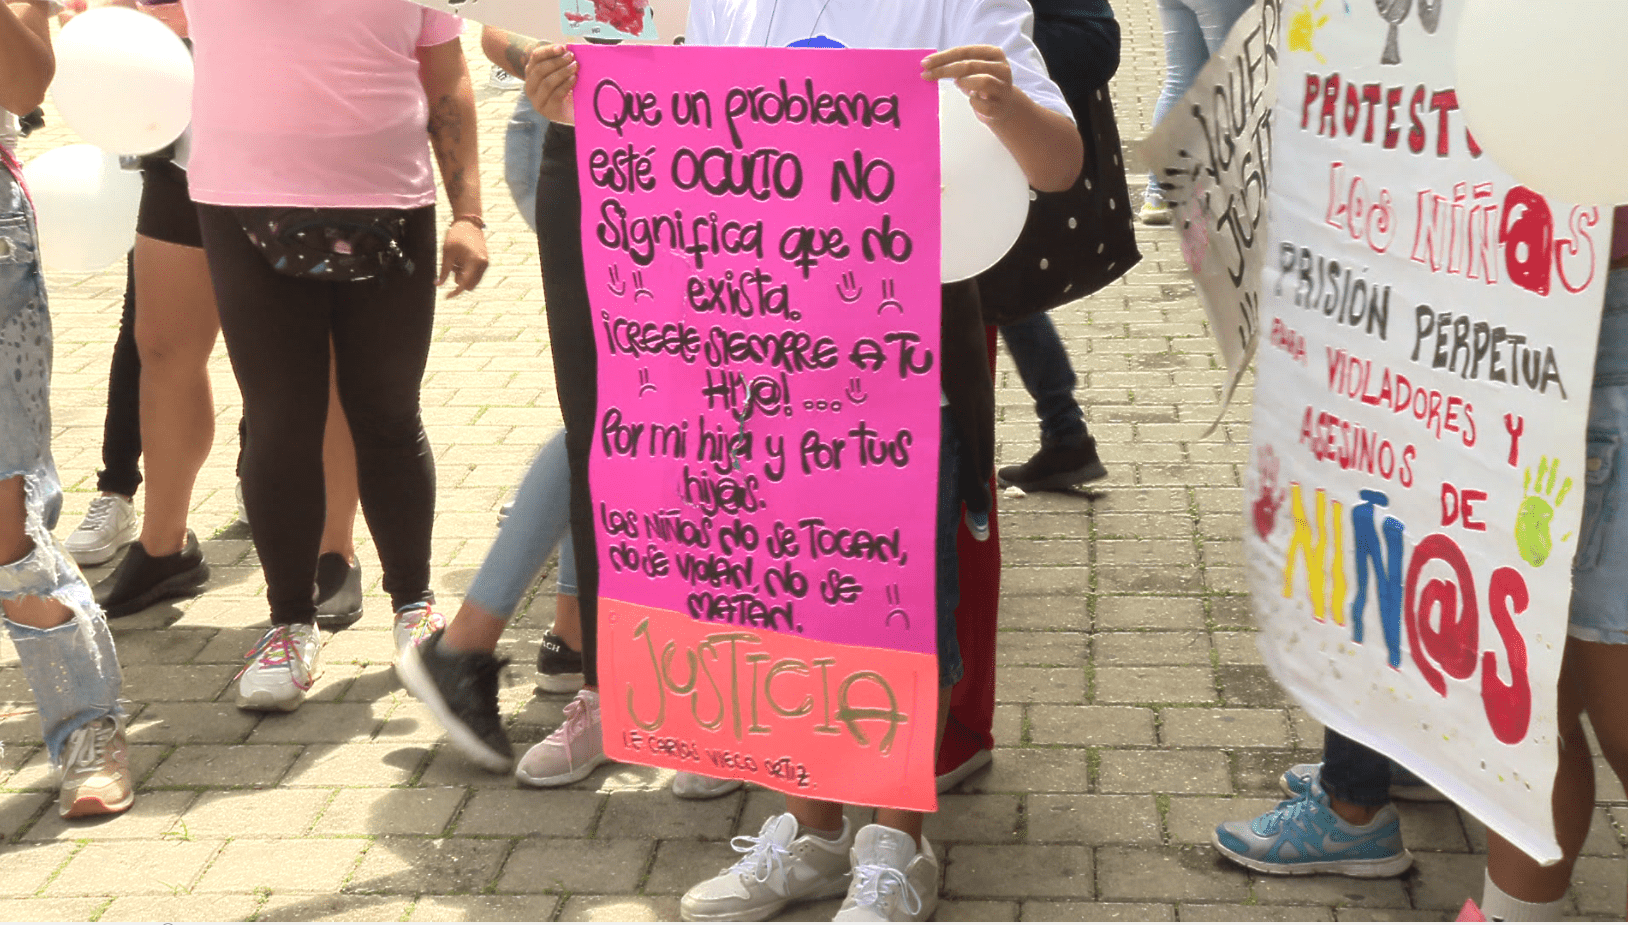 Que un problema
esté OCULTO NO
Significa que no
exista.
¡CREELE SIEMPRE A TU
HIJ@! ...
Por mi hija y por tus
hij@s.
Las NIÑAS NO se TOCAN,
NO SE VIOLAN, NO SE
MATAN.
JUSTICIA
I.E CARLOS VIECO ORTIZ.
¡QUER
JUSTI
PROTEST
LOS NIÑ@S
PRISIÓN PERPETUA
PARA VIOLADORES Y
ASESINOS DE
NIÑ@S